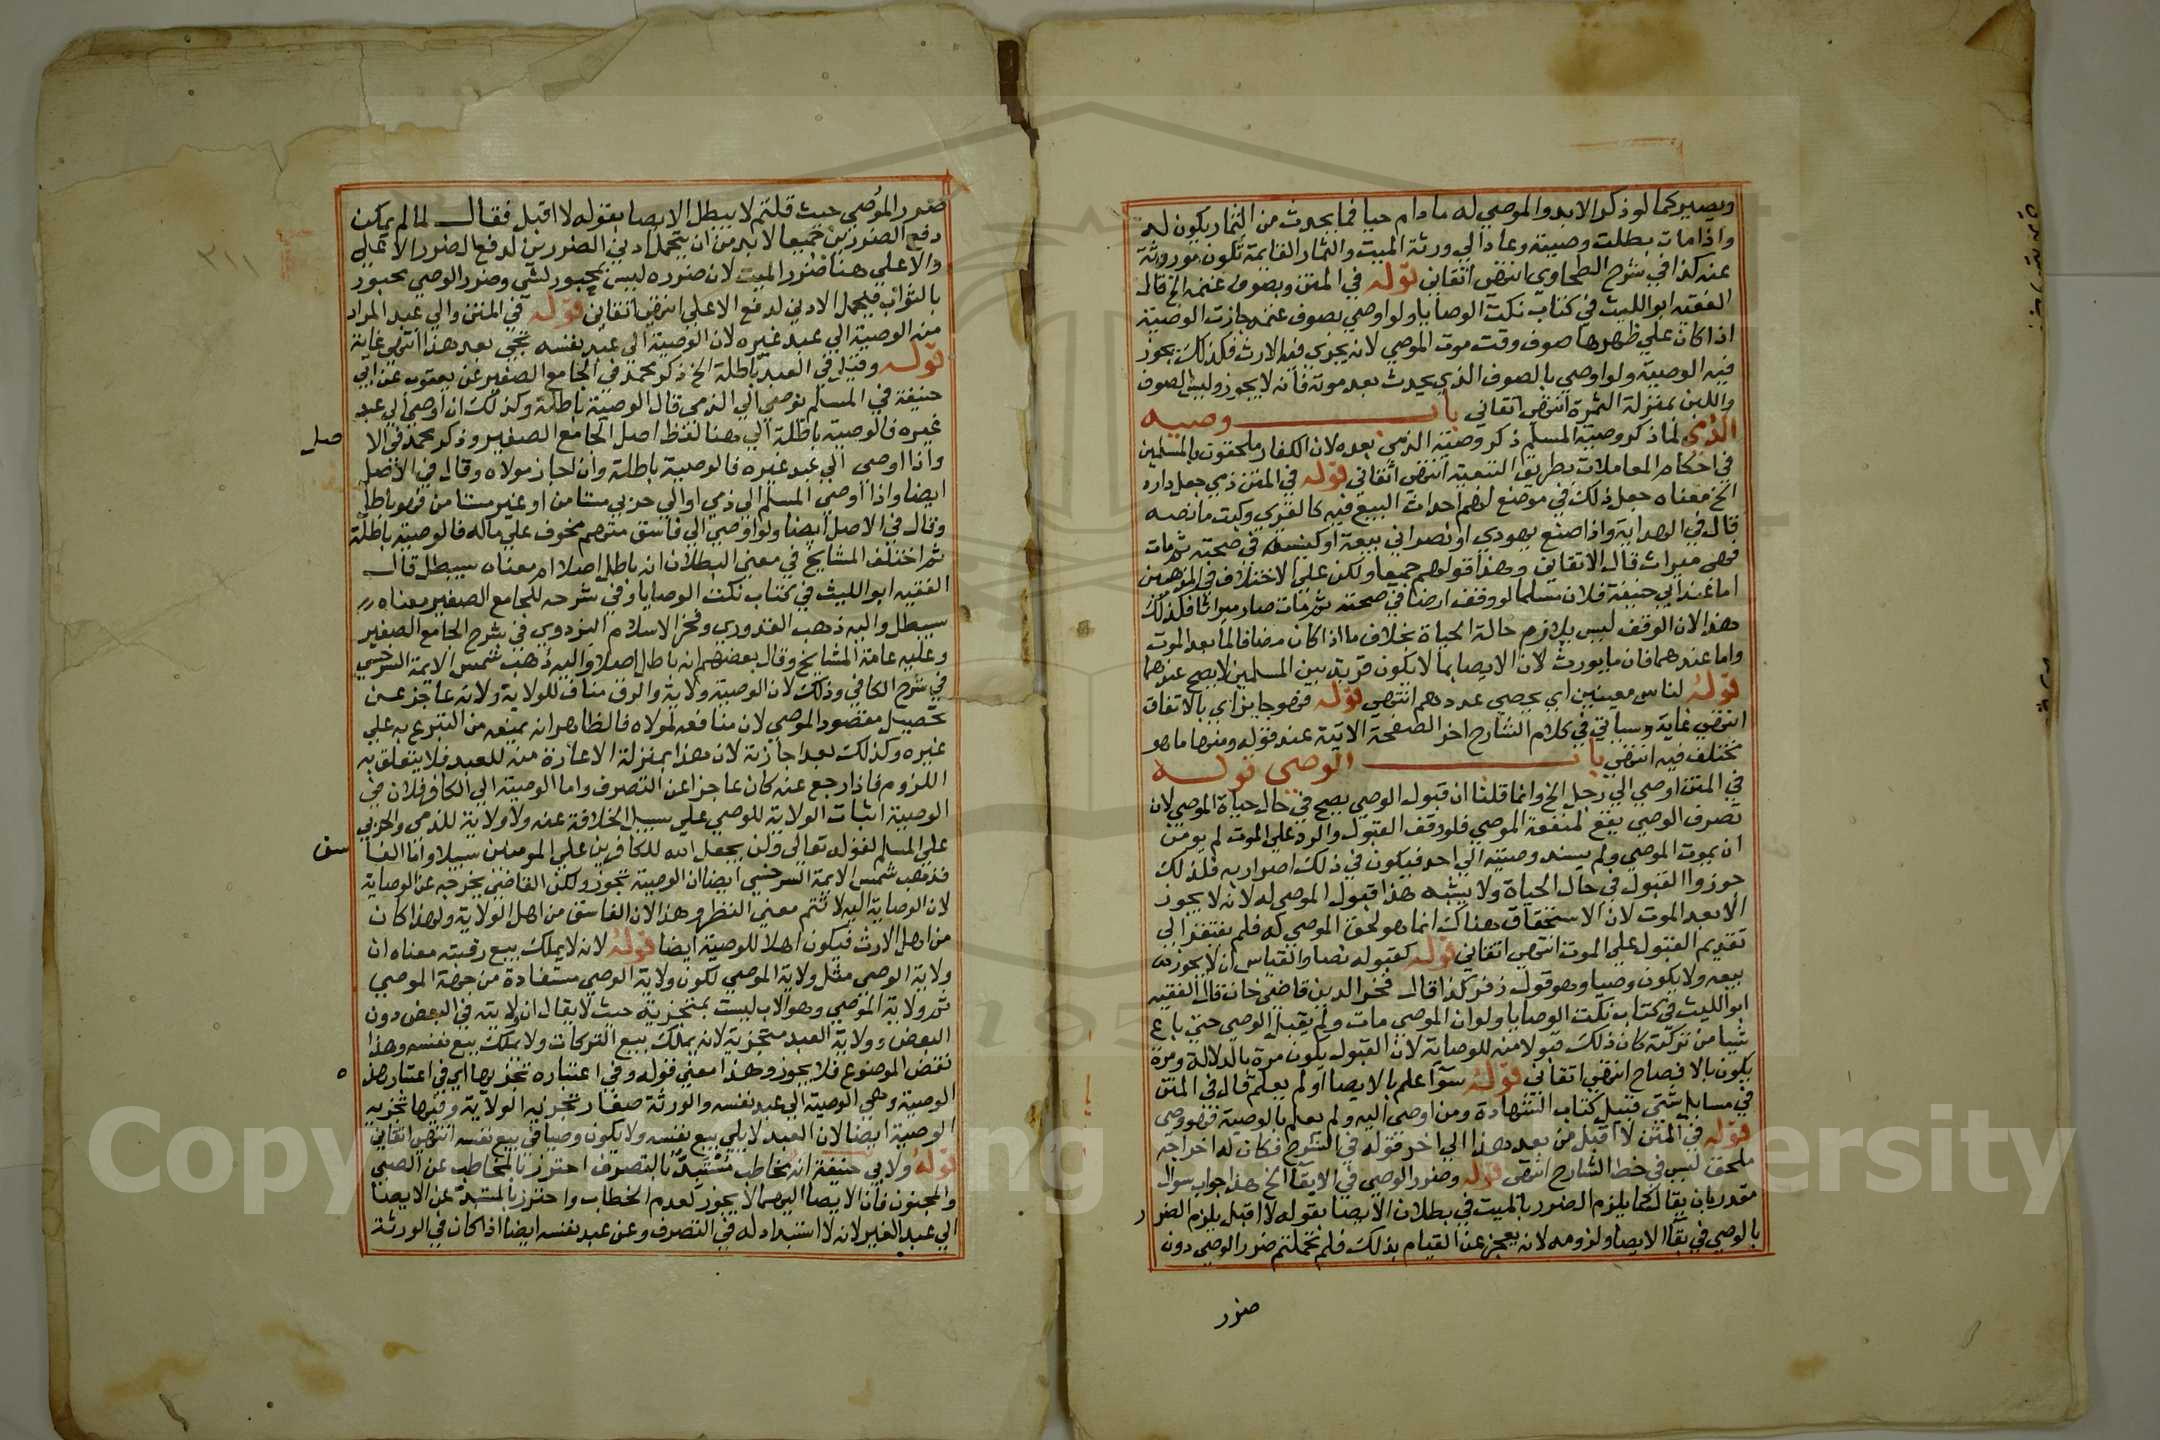 ويصير كما لو ذكر الابد والموصي له ما دام حيا فما يحدث من الثمار يكون له
واذا مات بطلت وصيته وعاد الي ورثة الميت والثمار القايمة تكون موروثة
عنه كذا في شرح الطحاوي انتهى اتقاني قوله في المتن وبصوف غنمه الخ قال
الفقيه ابو الليث في كتاب نكت الوصايا ولو اوصي بصوف غنمه جازت الوصية
اذا كان علي ظهرها صوف وقت موت الموصي لانه يجري فيه الارث فكذلك يجوز
فيه الوصية ولو اوصي بالصوف الذي يحدث بعد موته فانه لا يجوز ولبن الصوف
واللبن بمنزلة الثمرة انتهى اتقاني باب وصيه
الذمي لما ذكر وصية المسلم ذكر وصية الذمي بعده لان الكفار ملحقون بالمسلمين
في احكام المعاملات بطريق التبعية انتهى اتقاني قوله في المتن ذمي جعل داره
الخ معناه جعل ذلك في موضع لهم احداث البيع فيه كالقري وكتب ما نصه
قال في الهداية واذا صنع يهودي او نصراني بيعة او كنيسة في صحته ثم مات
فهي ميراث قال الاتقاني وهذا قولهم جميعا ولكن علي الاختلاف في المذهبين
اما عند ابي حنيفة فلان مسلما لو وقف ارضا في صحته ثم مات صار ميراثا فكذلك
هذا لان الوقف ليس بلازم حالة الحياة بخلاف ما اذا كان مضافا لما بعد الموت
واما عندهما فان ما يورث لان الايصا بما لا يكون قربة بين المسلمين لا يصح عندهما
قوله لناس معينين اي يحصي عددهم انتهى قوله فهو جايز اي بالاتفاق
انتهى غاية وسياتي في كلام الشارح اخر الصفحة الاتية عند قوله ومنها ما هو
مختلف فيه انتهى باب الوصي قوله
في المتن اوصي الي رجل الخ وانما قلنا ان قبول الوصي يصح في حال حياة الموصي لان
تصرف الوصي يقع لمنفعة الموصي فلو وقف القبول والرد علي الموت لم يومن
ان يموت الموصي ولم يسند وصيته الي احد فيكون في ذلك اضرار به فلذلك
جوزوا القبول في حال الحياة ولا يشبه هذا قبول الموصي له لانه لا يجوز
الا بعد الموت لان الاستحقاق هناك انما هو لحق الموصي له فلم يفتقر الي
تقديم القبول علي الموت انتهى اتقاني قوله كقبوله نصا والقياس ان لا يجوز
بيعه ولا يكون وصيا وهو قول زفر كذا قال فخر الدين قاضي خان قال الفقيه
ابو الليث في كتاب نكت الوصايا ولو ان الموصي مات ولم يقبل الوصي حتي باع
شيا من تركته كان ذلك قبولا منه للوصاية لان القبول يكون مرة بالدلالة ومرة
يكون بالافصاح انتهى اتقاني قوله سوا علم بالايصا او لم يعلم قال في المتن
في مسايل شتي قبيل كتاب الشهادة ومن اوصي اليه ولم يعلم بالوصية فهو وصي
قوله في المتن لا اقبل من بعد هذا الي اخر قوله في الشرح فكان له اخراجه
ملحق ليس في خط الشارح انتهى قوله وضرر الوصي في الابقا الخ هذا جواب سوال
مقدر بان يقال كما يلزم الضرر بالميت في بطلان الايصا بقوله لا اقبل يلزم الضرر
بالوصي في بقا الايصا ولزومه لانه يعجز عن القيام بذلك فلم تحملتم ضرر الوصي دون
ضرر
ضرر الموصي حيث قلتم لا يبطل الايصا بقوله لا اقبل فقال لما لم يمكن
دفع الضررين جميعا لا بد من ان يتحمل ادني الضررين لدفع الضرر الاعلي
والاعلي هنا ضرر الميت لان ضرره ليس بمجبور لشي وضرر الوصي مجبور
بالثواب فيحمل الادني لدفع الاعلي انتهى اتقاني قوله في المتن والي عبد المراد
من الوصية الي عبد غيره لان الوصية الي عبد نفسه تجي بعد هذا انتهى غاية
قوله وقيل في العبد باطلة الخ ذكر محمد في الجامع الصغير عن يعقوب عن ابي
حنيفة في المسلم يوصي الي الذمي قال الوصية باطلة وكذلك ان اوصي الي عبد
غيره فالوصية باطلة الي هنا لفظ اصل الجامع الصغير وذكر محمد في الاصل
واذا اوصي الي عبد غيره فالوصية باطلة وان اجاز مولاه وقال في الاصل
ايضا واذا اوصي المسلم الي ذمي او الي حربي مستامن او غير مستامن فهو باطل
وقال في الاصل ايضا ولو اوصي الي فاسق متهم مخوف علي ماله فالوصية باطلة
ثم اختلف المشايخ في معني البطلان انه باطل اصلا ام معناه سيبطل قال
الفقيه ابو الليث في كتاب نكت الوصايا وفي شرحه للجامع الصغير معناه
سيبطل واليه ذهب القدوري وفخر الاسلام البزدوي في شرح الجامع الصغير
وعليه عامة المشايخ وقال بعضهم انه باطل اصلا واليه ذهب شمس الايمة السرخسي
في شرح الكافي وذلك لان الوصية ولاية والرق مناف للولاية ولانه عاجز عن
تحصيل مقصود الموصي لان منافعه لمولاه فالظاهر انه يمنعه من التبرع به علي
غيره وكذلك بعد اجازته لان هذا بمنزلة الاعارة منه للعبد فلا يتعلق به
اللزوم فاذا رجع عنه كان عاجزا عن التصرف واما الوصية الي الكافر فلان في
الوصية اثبات الولاية للوصي علي سبيل الخلافة عنه ولا ولاية للذمي والحربي
علي المسلم لقوله تعالي ولن يجعل الله للكافرين علي المومنين سبيلا واما الفاسق
فذهب شمس الايمة السرخسي ايضا ان الوصية تجوز ولكن القاضي يخرجه عن الوصاية
لان الوصاية اليه لا تتم معني النظر وهذا لان الفاسق من اهل الولاية ولهذا كان
من اهل الارث فيكون اهلا للوصية ايضا قوله لانه لا يملك بيع رقبته معناه ان
ولاية الوصي مثل ولاية الموصي لكون ولاية الوصي مستفادة من جهة الموصي
ثم ولاية الموصي وهو الاب ليست بمتجزية حيث لا يقال ان ولايته في البعض دون
البعض وولاية العبد متجزية لانه يملك بيع التركات ولا يملك بيع نفسه وهذا
نقض الموضوع فلا يجوز وهذا معني قوله وفي اعتباره تجزيها اي في اعتبار هذه
الوصية وهي الوصية الي عبد نفسه والورثة صغار تجزية الولاية وفيها تجزية
الوصية ايضا لان العبد لا يلي بيع نفسه ولا يكون وصيا في بيع نفسه انتهى اتقاني
قوله ولابي حنيفة انه مخاطب مستبد بالتصرف احترز بالمخاطب عن الصبي
والمجنون فان الايصا اليهما لا يجوز لعدم الخطاب واحترز بالمستبد عن الايصا
الي عبد الغير لانه لا استبداد له في التصرف وعن عبد نفسه ايضا اذا كان في الورثة